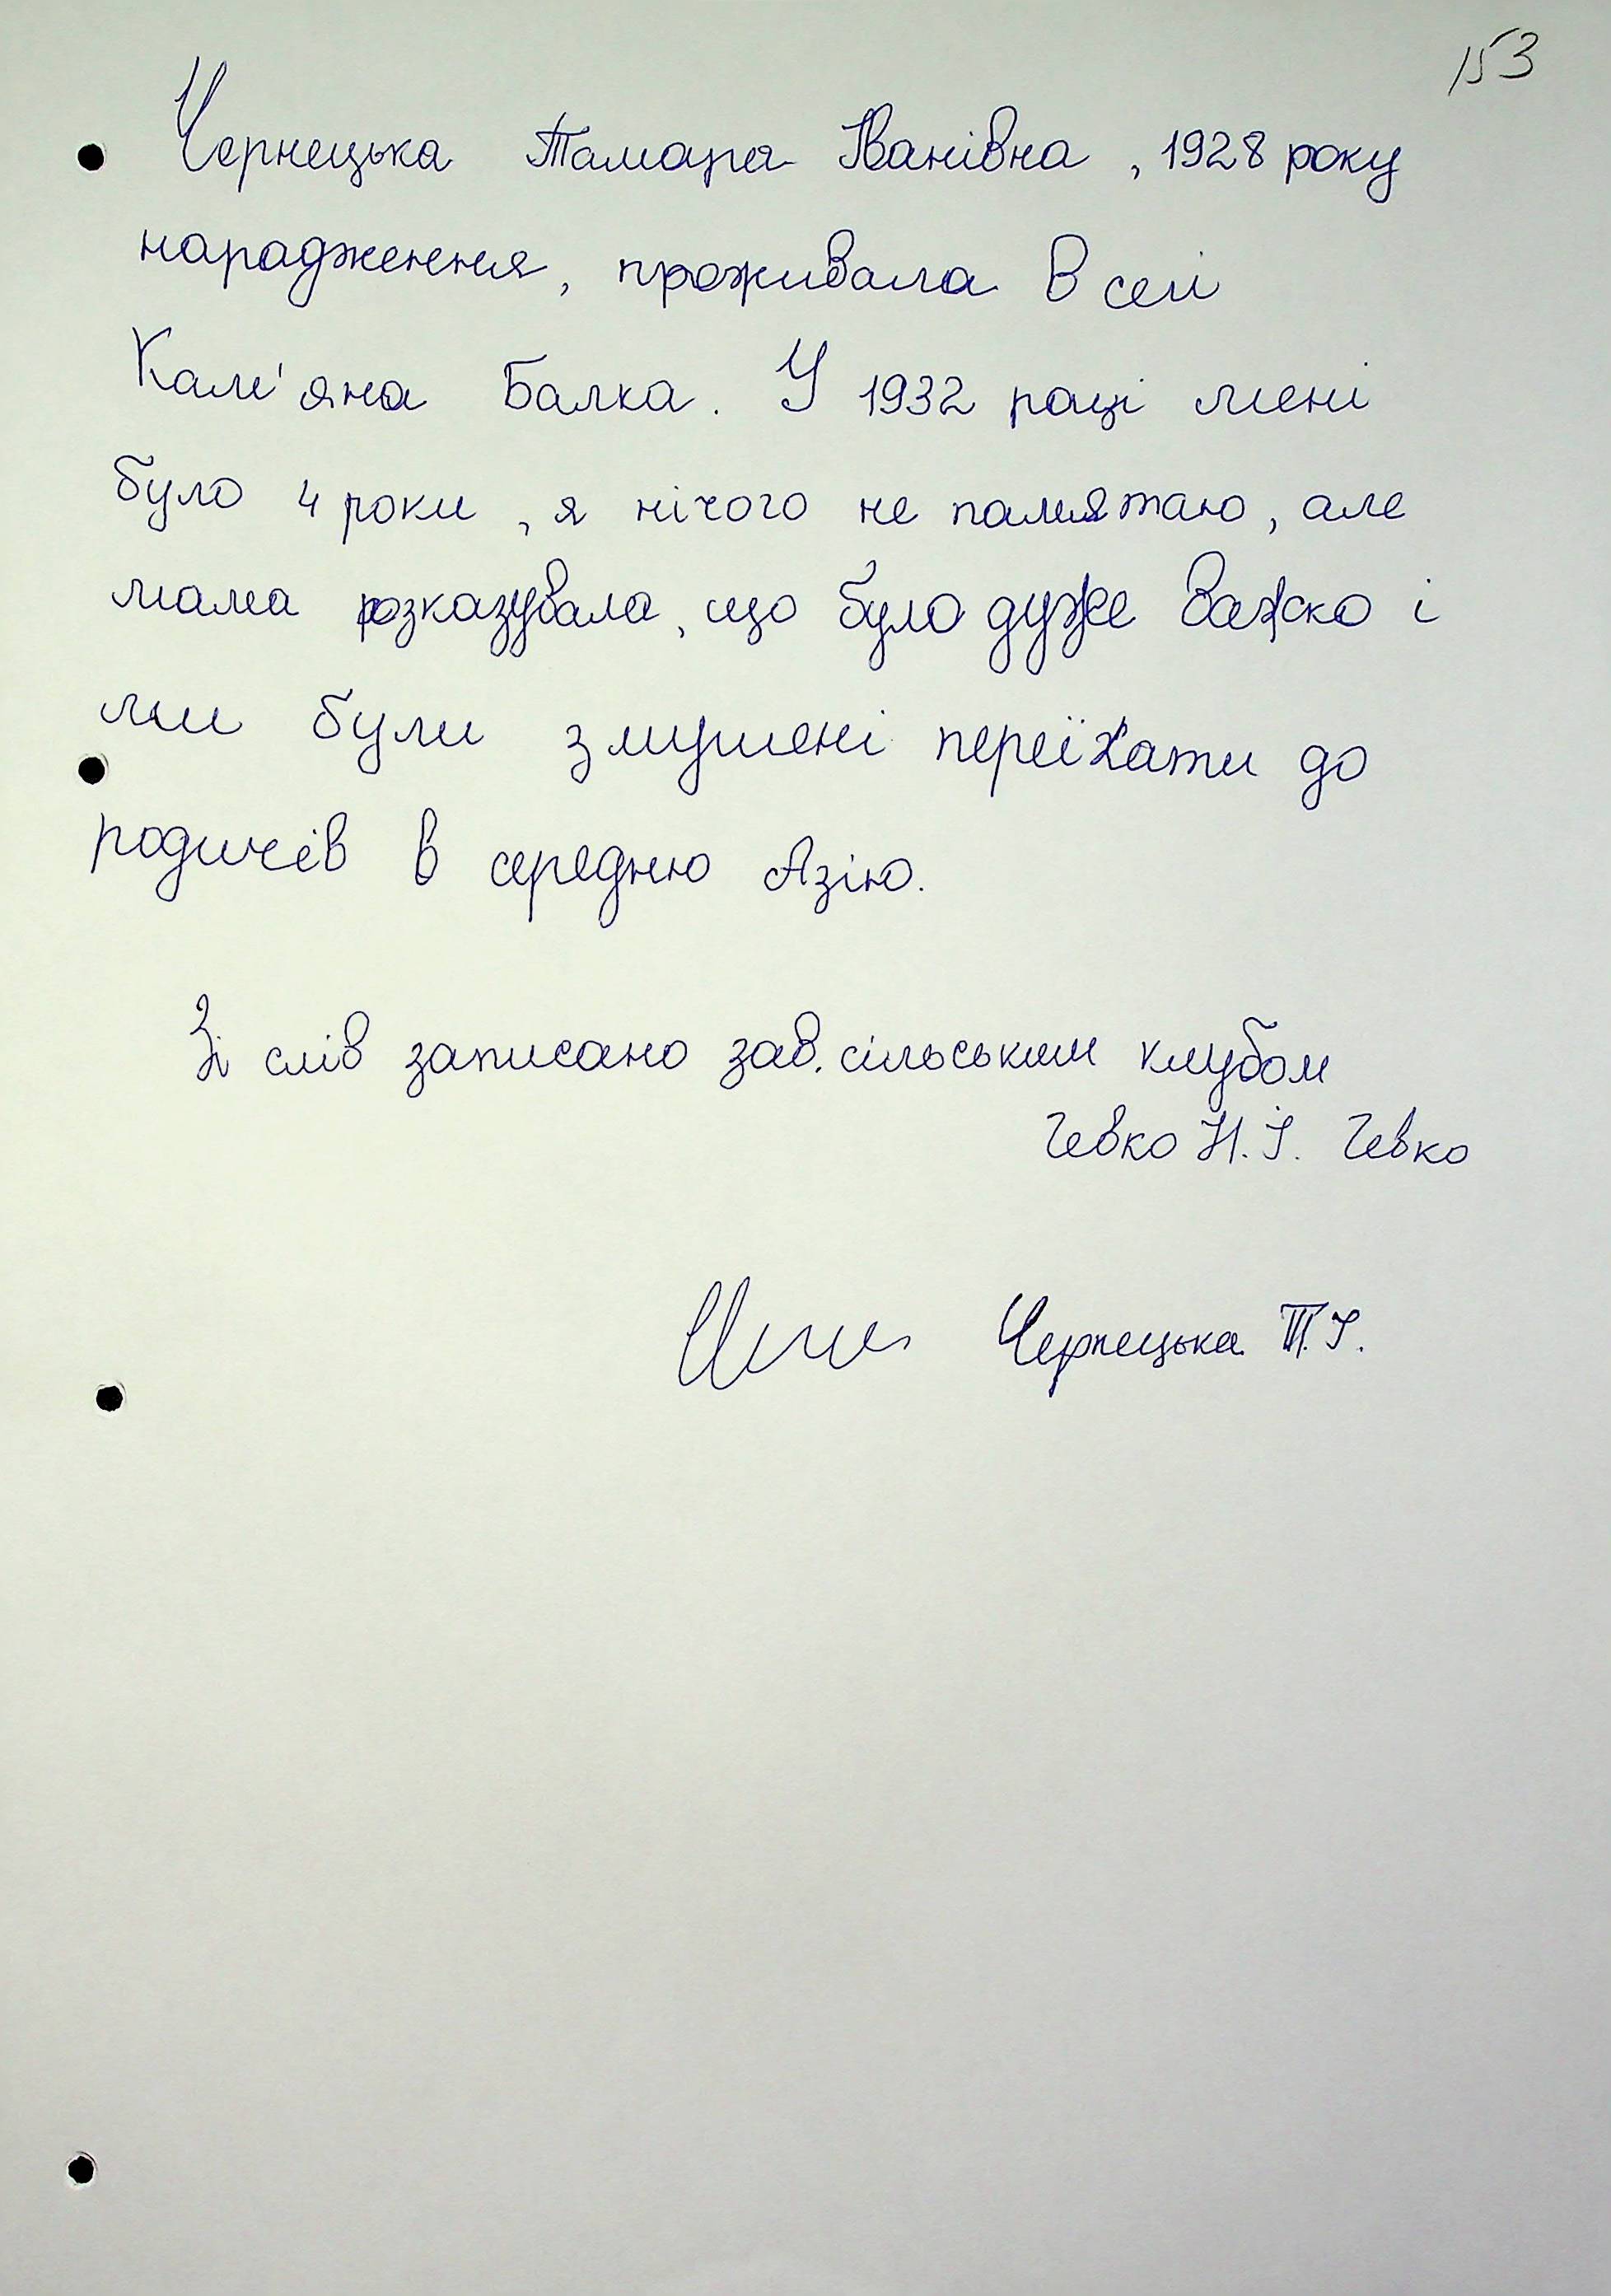 153
Чернецька Тамара Іванівна, 1928 року
народження, проживала в селі
Кам'яна Балка. У 1932 році мені
було 4 роки, я нічого не памятаю, але
мама розказувала, що було дуже важко і
ми були змушені переїхати до
родичів в середню Азію.
Зі слів записано зав. сільським клубом
Чевко Н.І. Чевко
Чернецька Т.І.